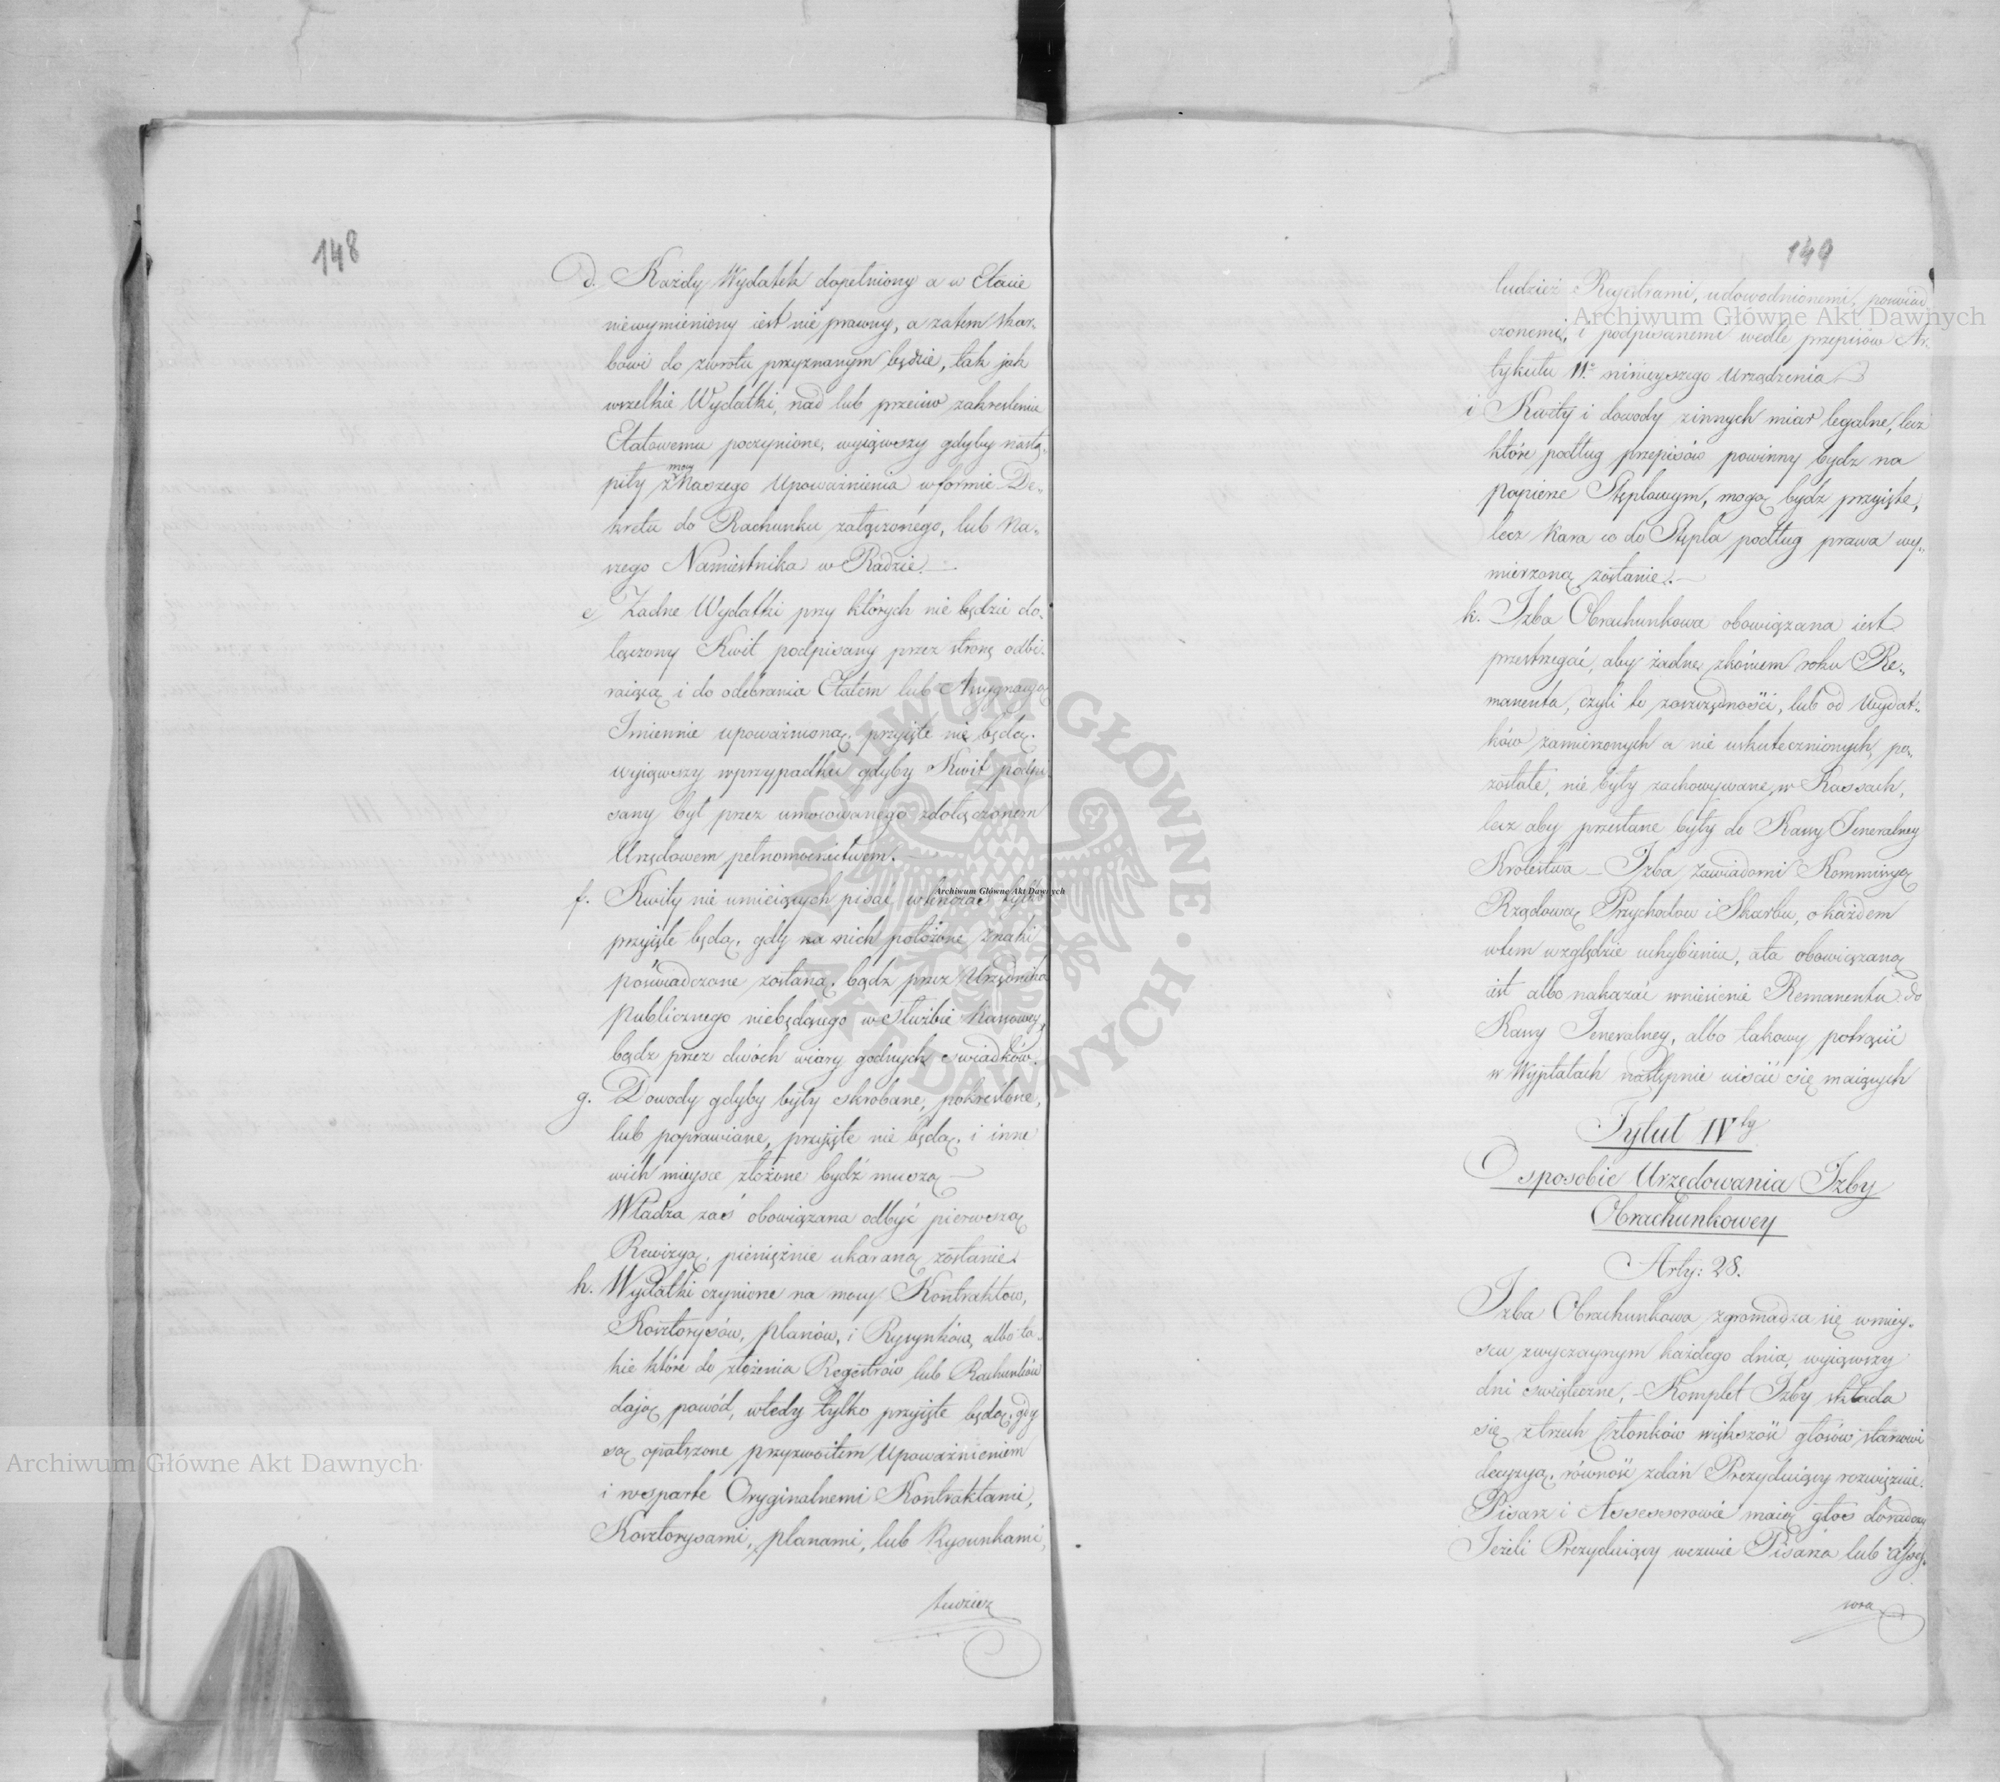 148
d. Każdy Wydatek dopełniony a w Etacie
niewymieniony iest nie prawny, a zatem Skar-
bowi do zwrotu przyznanym będzie, tak jak
wszelkie Wydatki, nad lub przeciw zakreśleniu
Etatowemu poczynione, wyiąwszy gdyby nastą-
piły z mocy Naszego Upoważnienia w formie De-
kretu do Rachunku załączonego, lub Na-
szego Namiestnika w Radzie.—
e) Żadne Wydatki przy których nie będzie do-
łączony Kwit podpisany przez stronę odbi-
raiącą i do odebrania Etatem lub Assygnacyą
Imiennie upoważnioną, przyięte nie będą.
wyiąwszy w przypadku gdyby Kwit podpi-
sany był przez umocowanego z dołączonem
Urzędowem pełnomocnictwem.—
f. Kwity nie umieiących pisać wówczas tylko
przyięte będą, gdy na nich położone znaki
poświadczone zostaną, bądź przez Urzędnika
Publicznego niebędącego w służbie Kassowey,
bądz przez dwóch wiary godnych swiadków.
g. Dowody gdyby były skrobane, pokreślone,
lub poprawiane, przyięte nie będą, i inne
w ich mieysce złożone bydź muszą—
Władza zaś obowiązana odbyć pierwszą
Rewizyą, pieniężnie ukaraną zostanie.
h. Wydatki czynione na mocy Kontraktów,
Kosztorysów, planów, i Rysunków, albo ta-
kie które do złożenia Regestrów lub Rachunków
dają powód, wtedy tylko przyięte będą, gdy
są opatrzone przyzwoitem Upoważnieniem
i wsparte Oryginalnemi Kontraktami,
Kosztorysami, planami, lub Rysunkami,
tudzież
149
tudzież Rejestrami, udowodnionemi, poswiad-
czonemi, i podpisanemi wedle przepisów Ar-
tykułu 11.º ninieyszego Urządzenia
i Kwity i dowody z innych miar legalne, lecz
które podług przepisów powinny bydz na
papierze Stęplowym, mogą bydz przyięte,
lecz Kara co do Stępla podług prawa wy-
mierzoną zostanie.—
k. Izba Obrachunkowa obowiązana iest
przestrzegać, aby żadne z końcem roku Re-
manenta, czyli to z oszczędności, lub od Wydat-
ków zamierzonych a nie uskutecznionych, po-
zostałe, nie były zachowywane w Kassach,
lecz aby przesłane były do Kassy Jeneralney
Krolestwa — Izba zawiadomi Kommissyą
Rządową Przychodow i Skarbu, o każdem
w tem względzie uchybieniu, a ta obowiązaną
iest albo nakazać wniesienie Remanentu do
Kassy Jeneralney, albo takowy potrącić
w Wypłatach następnie uiścić się maiących
Tytuł IV ty
O sposobie Urzędowania Izby
Obrachunkowey
Arty: 28.
Izba Obrachunkowa zgromadza się w miey-
scu zwyczaynym każdego dnia, wyiąwszy
dni swiąteczne, — Komplet Izby składa
się z trzech Członków większość głosów stanowi
decyzyą, równość zdań Prezyduiący rozwiąznie.
Pisarz i Assessorowie maią głos doradczy
Jeżeli Prezyduiący wezwie Pisarza lub Asses-
sora
Archiwum Główne Akt Dawnych
Archiwum Główne Akt Dawnych
Archiwum Główne Akt Dawnych
ARCHIWUM GŁÓWNE · AKT DAWNYCH ·